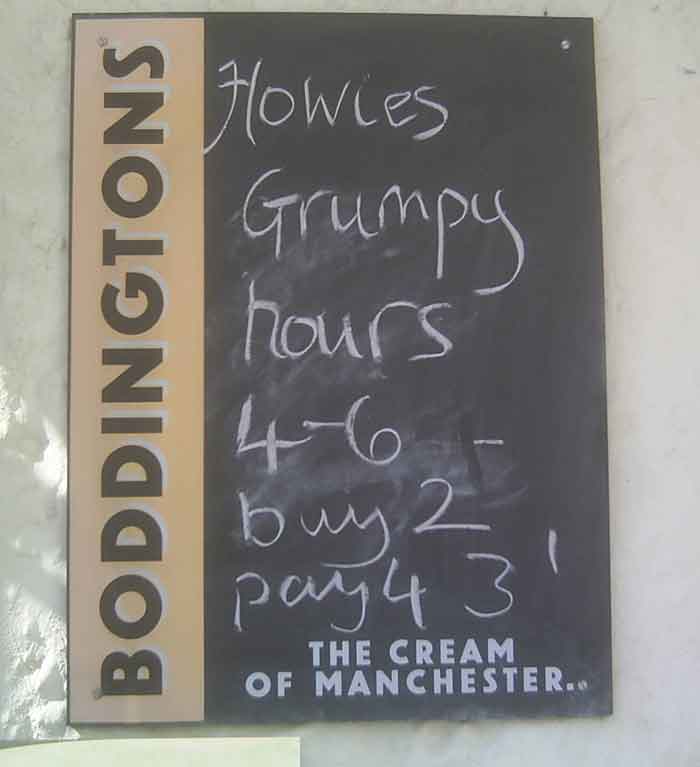 BODDINGTONS
Howies
Grumpy
hours
4-6 -
buy 2
pay 4 3 !
THE CREAM
OF MANCHESTER.